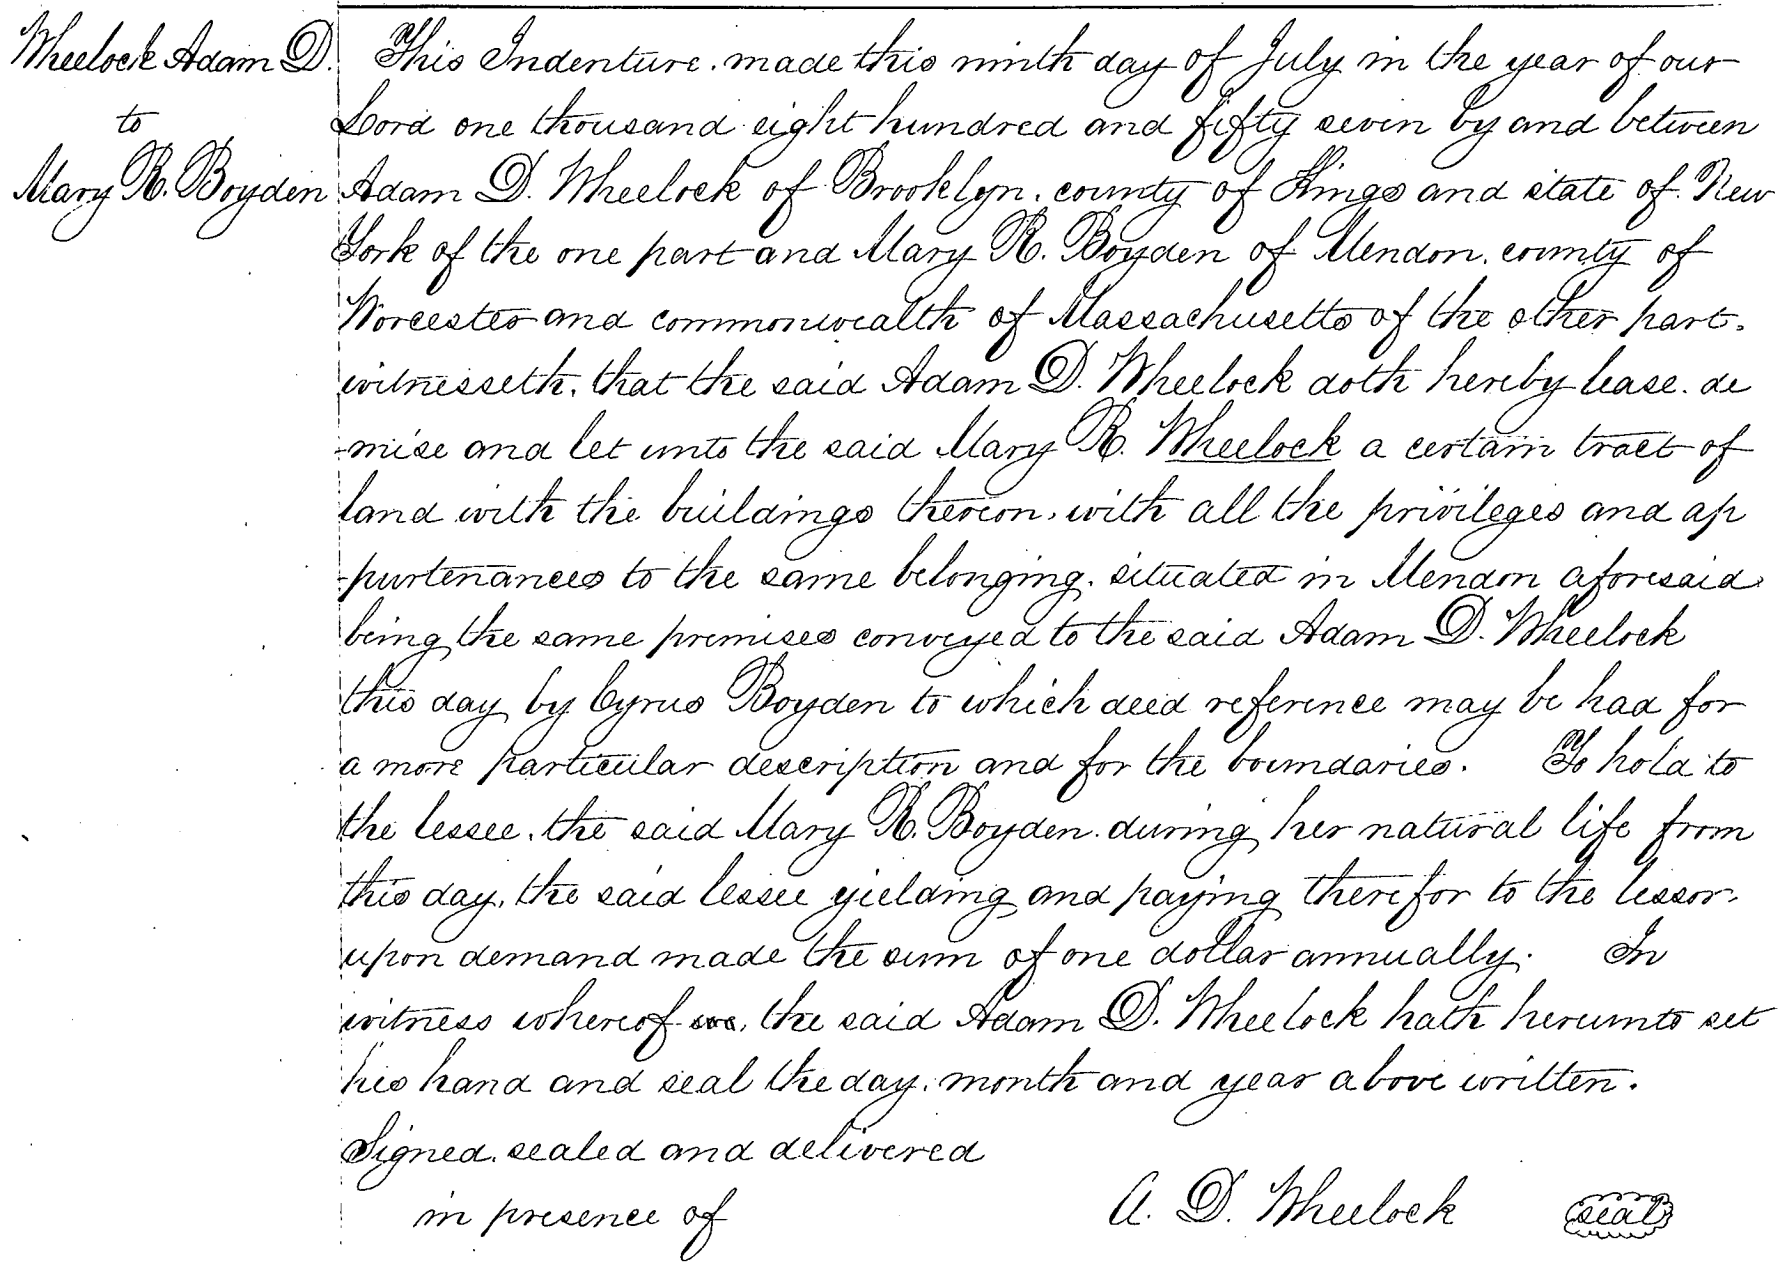 Wheelock Adam D.
to
Mary R. Boyden
This Indenture. made this ninth day of July in the year of our
Lord one thousand eight hundred and fifty seven by and between
Adam D. Wheelock of Brooklyn. county of Kings and state of. New
York of the one part and Mary R. Boyden of Mendon. county of
Worcester and commonwealth of Massachusetts of the other part.
witnesseth, that the said Adam D. Wheelock doth hereby lease. de
-mise and let unto the said Mary R. Wheelock a certain tract of
land with the buildings thereon. with all the privileges and ap
-purtenances to the same belonging. situated in Mendon aforesaid
being the same premises conveyed to the said Adam D. Wheelock
this day by Cyrus Boyden to which deed reference may be had for
a more particular description and for the boundaries. To hold to
the lessee. the said Mary R. Boyden. during her natural life from
this day, the said lessee yielding and paying therefor to the lessor.
upon demand made the sum of one dollar annually. In
witness whereof we, the said Adam D. Wheelock hath hereunto set
his hand and seal the day. month and year above written.
Signed. sealed and delivered
in presence of
A. D. Wheelock seal